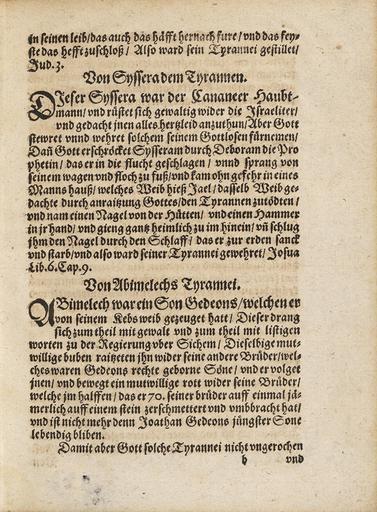 in seinen leib/das auch das häfft hernach fure/vnd das fey-
ste das hefft zuschloß/ Also ward sein Tyrannei gestillet/
Jud. 3.
Von Syssera dem Tyrannen.
Dieser Syssera war der Cananeer Haubt-
mann/vnd rüstet sich gewaltig wider die Israeliter/
vnd gedacht jnen alles hertzleid anzuthun/Aber Gott
stewret vnnd wehret solchem seinem Gottlosen fürnemen/
Dañ Gott erschröcket Sysseram durch Deboram die Pro
phetin/das er in die flucht geschlagen/ vnnd sprang von
seinem wagen vnd floch zu fuß/vnd kam ohn gefehr in eines
Manns hauß/welches Weib hieß Jael/dasselb Weib ge-
dachte durch anraitzung Gottes/den Tyrannen zutödten/
vnd nam einen Nagel von der Hütten/ vnd einen Hammer
in jr hand/vnd gieng gantz heimlich zu im hinein/vñ schlug
jhm den Nagel durch den Schlaff/das er zur erden sanck
vnd starb/vnd also ward seiner Tyrannei gewehret/Josua
Lib. 6. Cap. 9.
Von Abimelechs Tyrannei.
ABimelech war ein Son Gedeons/welchen er
von seinem Kebs weib gezeuget hatt/ Dieser drang
sich zum theil mit gewalt vnd zum theil mit listigen
worten zu der Regierung vber Sichem/ Dieselbige mut-
willige buben raitzeten jhn wider seine andere Brüder/wel-
ches waren Gedeons rechte geborne Söne/vnd er volget
jnen/vnd bewegt ein mutwillige rott wider seine Brüder/
welche jm halffen/das er 70. seiner brüder auff einmal jä-
merlich auff einem stein zerschmettert vnd vmbbracht hat/
vnd ist nicht mehr denn Joathan Gedeons jüngster Sone
lebendig bliben.
Damit aber Gott solche Tyrannei nicht vngerochen
b vnd